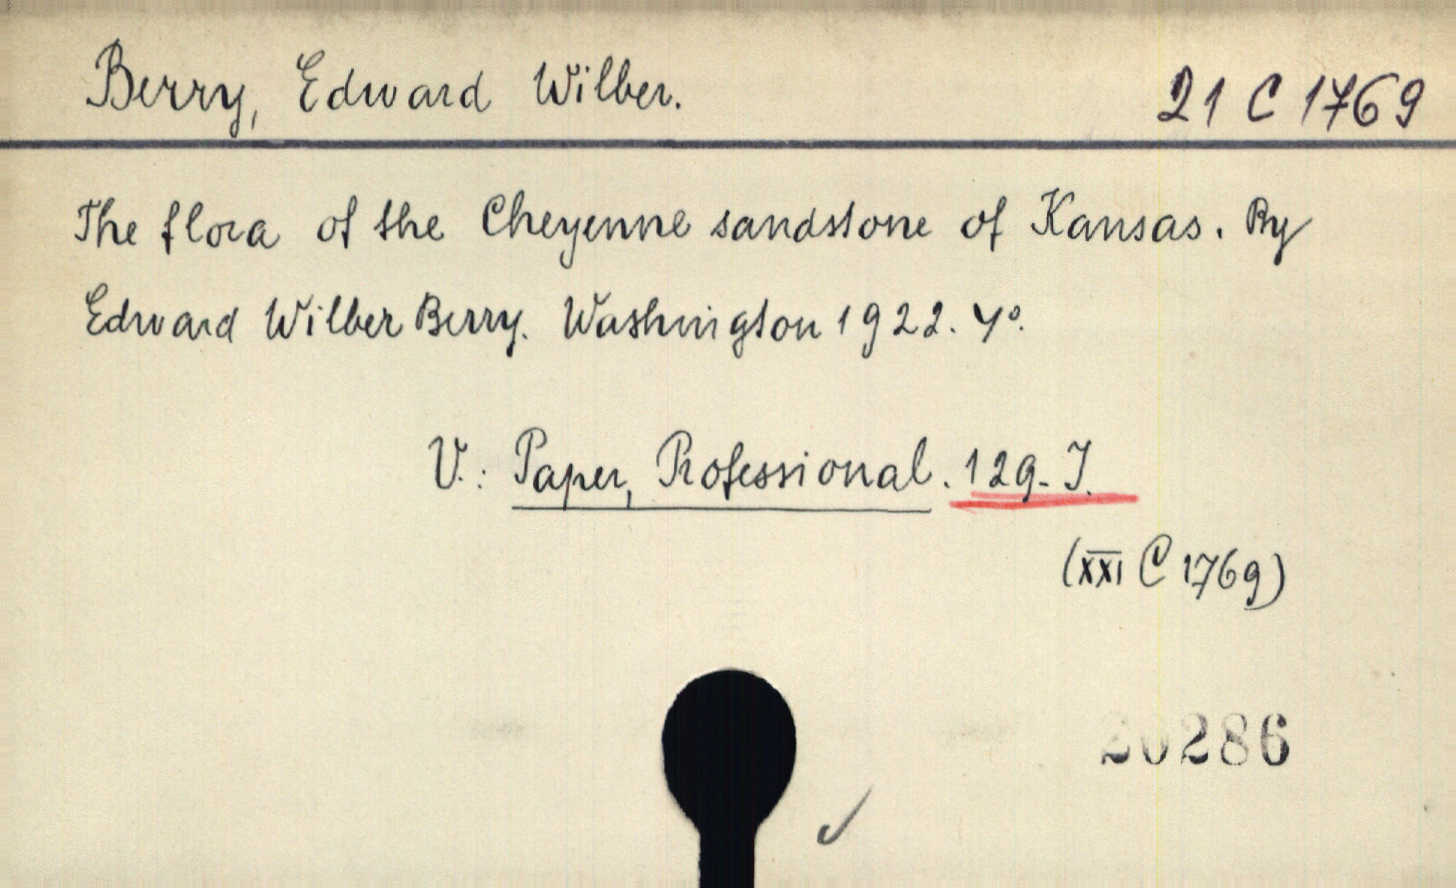 Berry, Edward Wilber.
21 C 1769
The flora of the Cheyenne sandstone of Kansas. By
Edward Wilber Berry. Washington 1922. 4°.
V.: Paper, Professional. 129-I.
(XXI C 1769)
20286